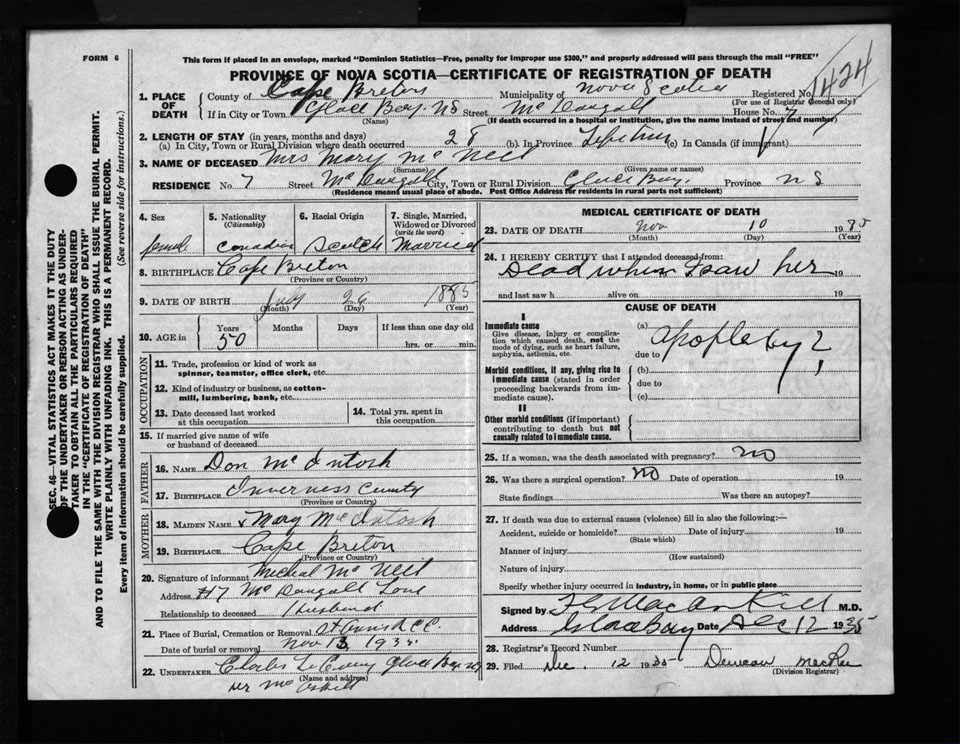 FORM 6
This form if placed in an envelope, marked "Dominion Statistics—Free, penalty for improper use $300," and properly addressed will pass through the mail "FREE"
PROVINCE OF NOVA SCOTIA—CERTIFICATE OF REGISTRATION OF DEATH
1424
1. PLACE OF DEATH
County of Cape Breton Municipality of Nova Scotia Registered No.
(For use of Registrar General only)
If in City or Town Glace Bay. NS Street McDougall House No. 7
(Name) (If death occurred in a hospital or institution, give the name instead of street and number)
2. LENGTH OF STAY (in years, months and days)
(a) In City, Town or Rural Division where death occurred 28 (b) In Province Lifetime (c) In Canada (if immigrant)
3. NAME OF DECEASED Mrs Mary McNeil
(Surname) (Given name or names)
RESIDENCE No. 7 Street McDougall City, Town or Rural Division Glace Bay. Province N S
(Residence means usual place of abode. Post Office Address for residents in rural parts not sufficient)
4. Sex 5. Nationality (Citizenship) 6. Racial Origin 7. Single, Married, Widowed or Divorced (write the word)
female Canadian Scotch Married
8. BIRTHPLACE Cape Breton
(Province or Country)
9. DATE OF BIRTH July 26 1885
(Month) (Day) (Year)
10. AGE in Years Months Days If less than one day old
50 hrs. or min.
OCCUPATION
11. Trade, profession or kind of work as spinner, teamster, office clerk, etc.
12. Kind of industry or business, as cotton-mill, lumbering, bank, etc.
13. Date deceased last worked at this occupation
14. Total yrs. spent in this occupation
15. If married give name of wife or husband of deceased
FATHER
16. NAME Don McIntosh
17. BIRTHPLACE Inverness County
(Province or Country)
MOTHER
18. MAIDEN NAME Mary McIntosh
19. BIRTHPLACE Cape Breton
(Province or Country)
20. Signature of informant Micheal McNeil
Address #7 McDougall
Relationship to deceased Husband
21. Place of Burial, Cremation or Removal
Date of burial or removal Nov 13 193
22. UNDERTAKER Glace Bay
(Name and address)
MEDICAL CERTIFICATE OF DEATH
23. DATE OF DEATH Nov 10 1935
(Month) (Day) (Year)
24. I HEREBY CERTIFY that I attended deceased from:
Dead when I saw her 19
and last saw h alive on 19
CAUSE OF DEATH
I
Immediate cause
Give disease, injury or complication which caused death, not the mode of dying, such as heart failure, asphyxia, asthenia, etc.
(a) apoplexy?
due to
Morbid conditions, if any, giving rise to immediate cause (stated in order proceeding backwards from immediate cause).
(b)
due to
(c)
II
Other morbid conditions (if important) contributing to death but not causally related to immediate cause.
25. If a woman, was the death associated with pregnancy? No
26. Was there a surgical operation? No Date of operation 19
State findings Was there an autopsy?
27. If death was due to external causes (violence) fill in also the following:—
Accident, suicide or homicide? Date of injury 19
(State which)
Manner of injury
(How sustained)
Nature of injury
Specify whether injury occurred in industry, in home, or in public place
Signed by M.D.
Address Glace Bay Date Dec 12 1935
28. Registrar's Record Number
29. Filed Dec. 12 1935 Duncan MacRae
(Division Registrar)
SEC. 46—VITAL STATISTICS ACT MAKES IT THE DUTY
OF THE UNDERTAKER OR PERSON ACTING AS UNDER-
TAKER TO OBTAIN ALL THE PARTICULARS REQUIRED
IN THE "CERTIFICATE OF REGISTRATION OF DEATH"
AND TO FILE THE SAME WITH THE DIVISION REGISTRAR WHO SHALL ISSUE THE BURIAL PERMIT.
WRITE PLAINLY WITH UNFADING INK. THIS IS A PERMANENT RECORD.
Every item of information should be carefully supplied. (See reverse side for instructions.)